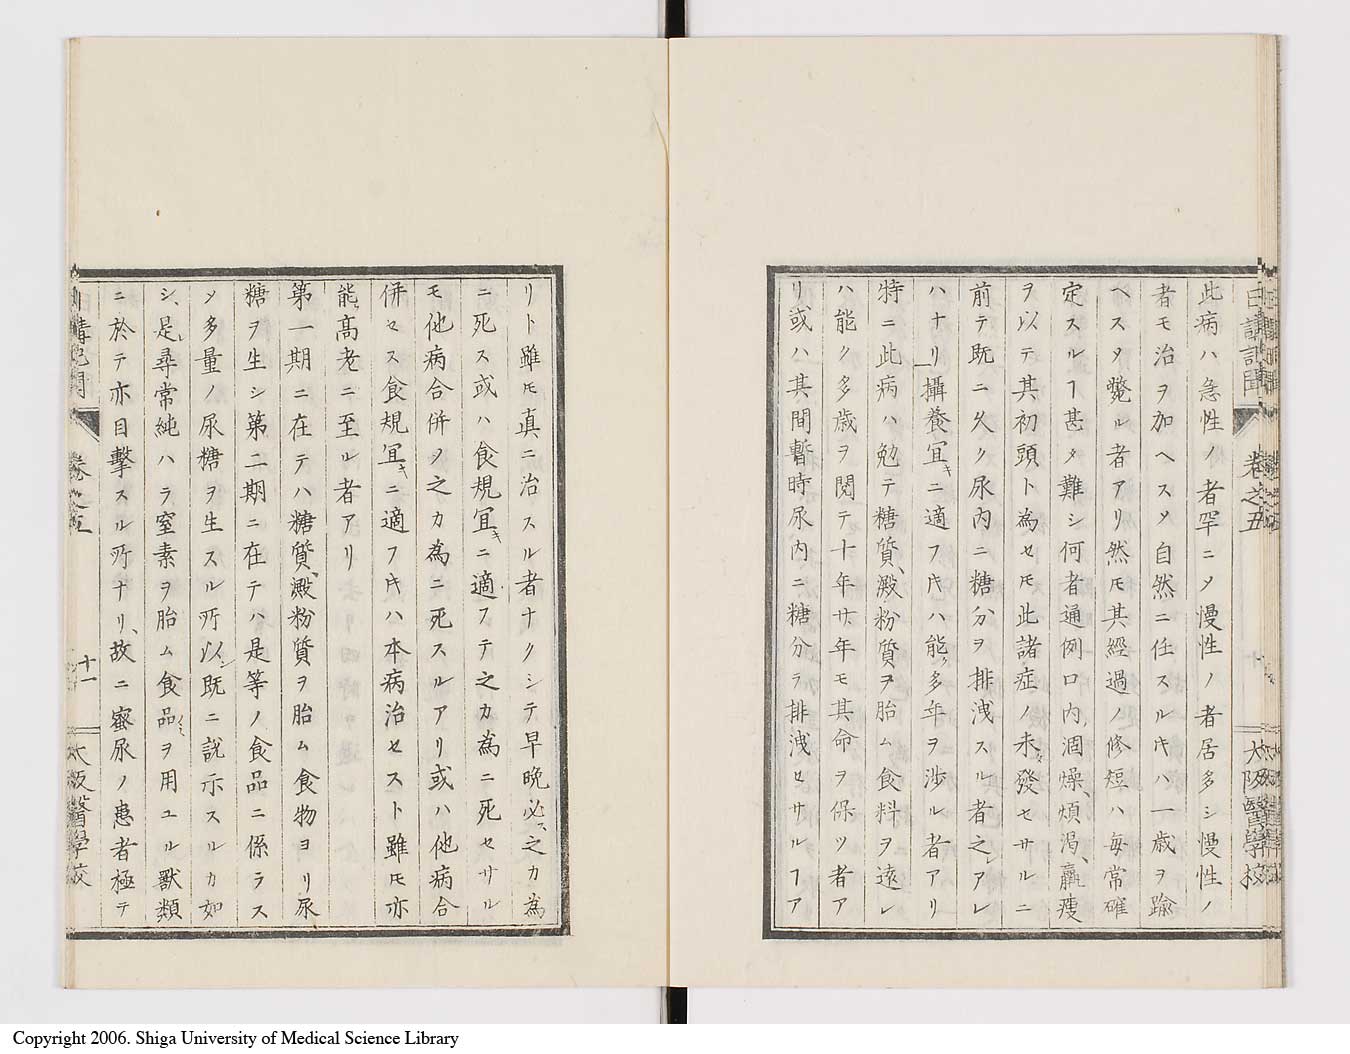 日講記聞 卷之五 大阪醫學校
此病ハ急性ノ者罕ニメ慢性ノ者居多シ慢性ノ
者モ治ヲ加ヘスメ自然ニ任スルキハ一歳ヲ踰
ヘスメ斃ル者アリ然モ其經過ノ修短ハ毎常確
定スルフ甚タ難シ何者通例口内涸燥、煩渇、羸痩
ヲ以テ其初頭ト為セモ此諸症ノ未タ發セサルニ
前テ既ニ久ク尿内ニ糖分ヲ排洩スル者之レアレ
ハナリ攝養宜キニ適フキハ能ク多年ヲ渉ル者アリ
特ニ此病ハ勉テ糖質、澱粉質ヲ胎ム食料ヲ遠レ
ハ能ク多歳ヲ閲テ十年廿年モ其命ヲ保ツ者ア
リ或ハ其間暫時尿内ニ糖分ヲ排洩セサルフア
リト雖モ真ニ治スル者ナクシテ早晩必ス之カ為
ニ死ス或ハ食規宜キニ適フテ之カ為ニ死セサル
モ他病合併ノ之カ為ニ死スルアリ或ハ他病合
併セス食規宜キニ適フキハ本病治セスト雖モ亦
能ク高老ニ至ル者アリ
第一期ニ在テハ糖質、澱粉質ヲ胎ム食物ヨリ尿
糖ヲ生シ第二期ニ在テハ是等ノ食品ニ係ラス
メ多量ノ尿糖ヲ生スル所以シ既ニ説示スルカ如
シ、是レ尋常純ハラ窒素ヲ胎ム食品ヲ用ユル獸類
ニ於テ亦目擊スル所ナリ、故ニ蜜尿ノ患者極テ
日講記聞 卷之五 十一 大阪醫學校
Copyright 2006. Shiga University of Medical Science Library